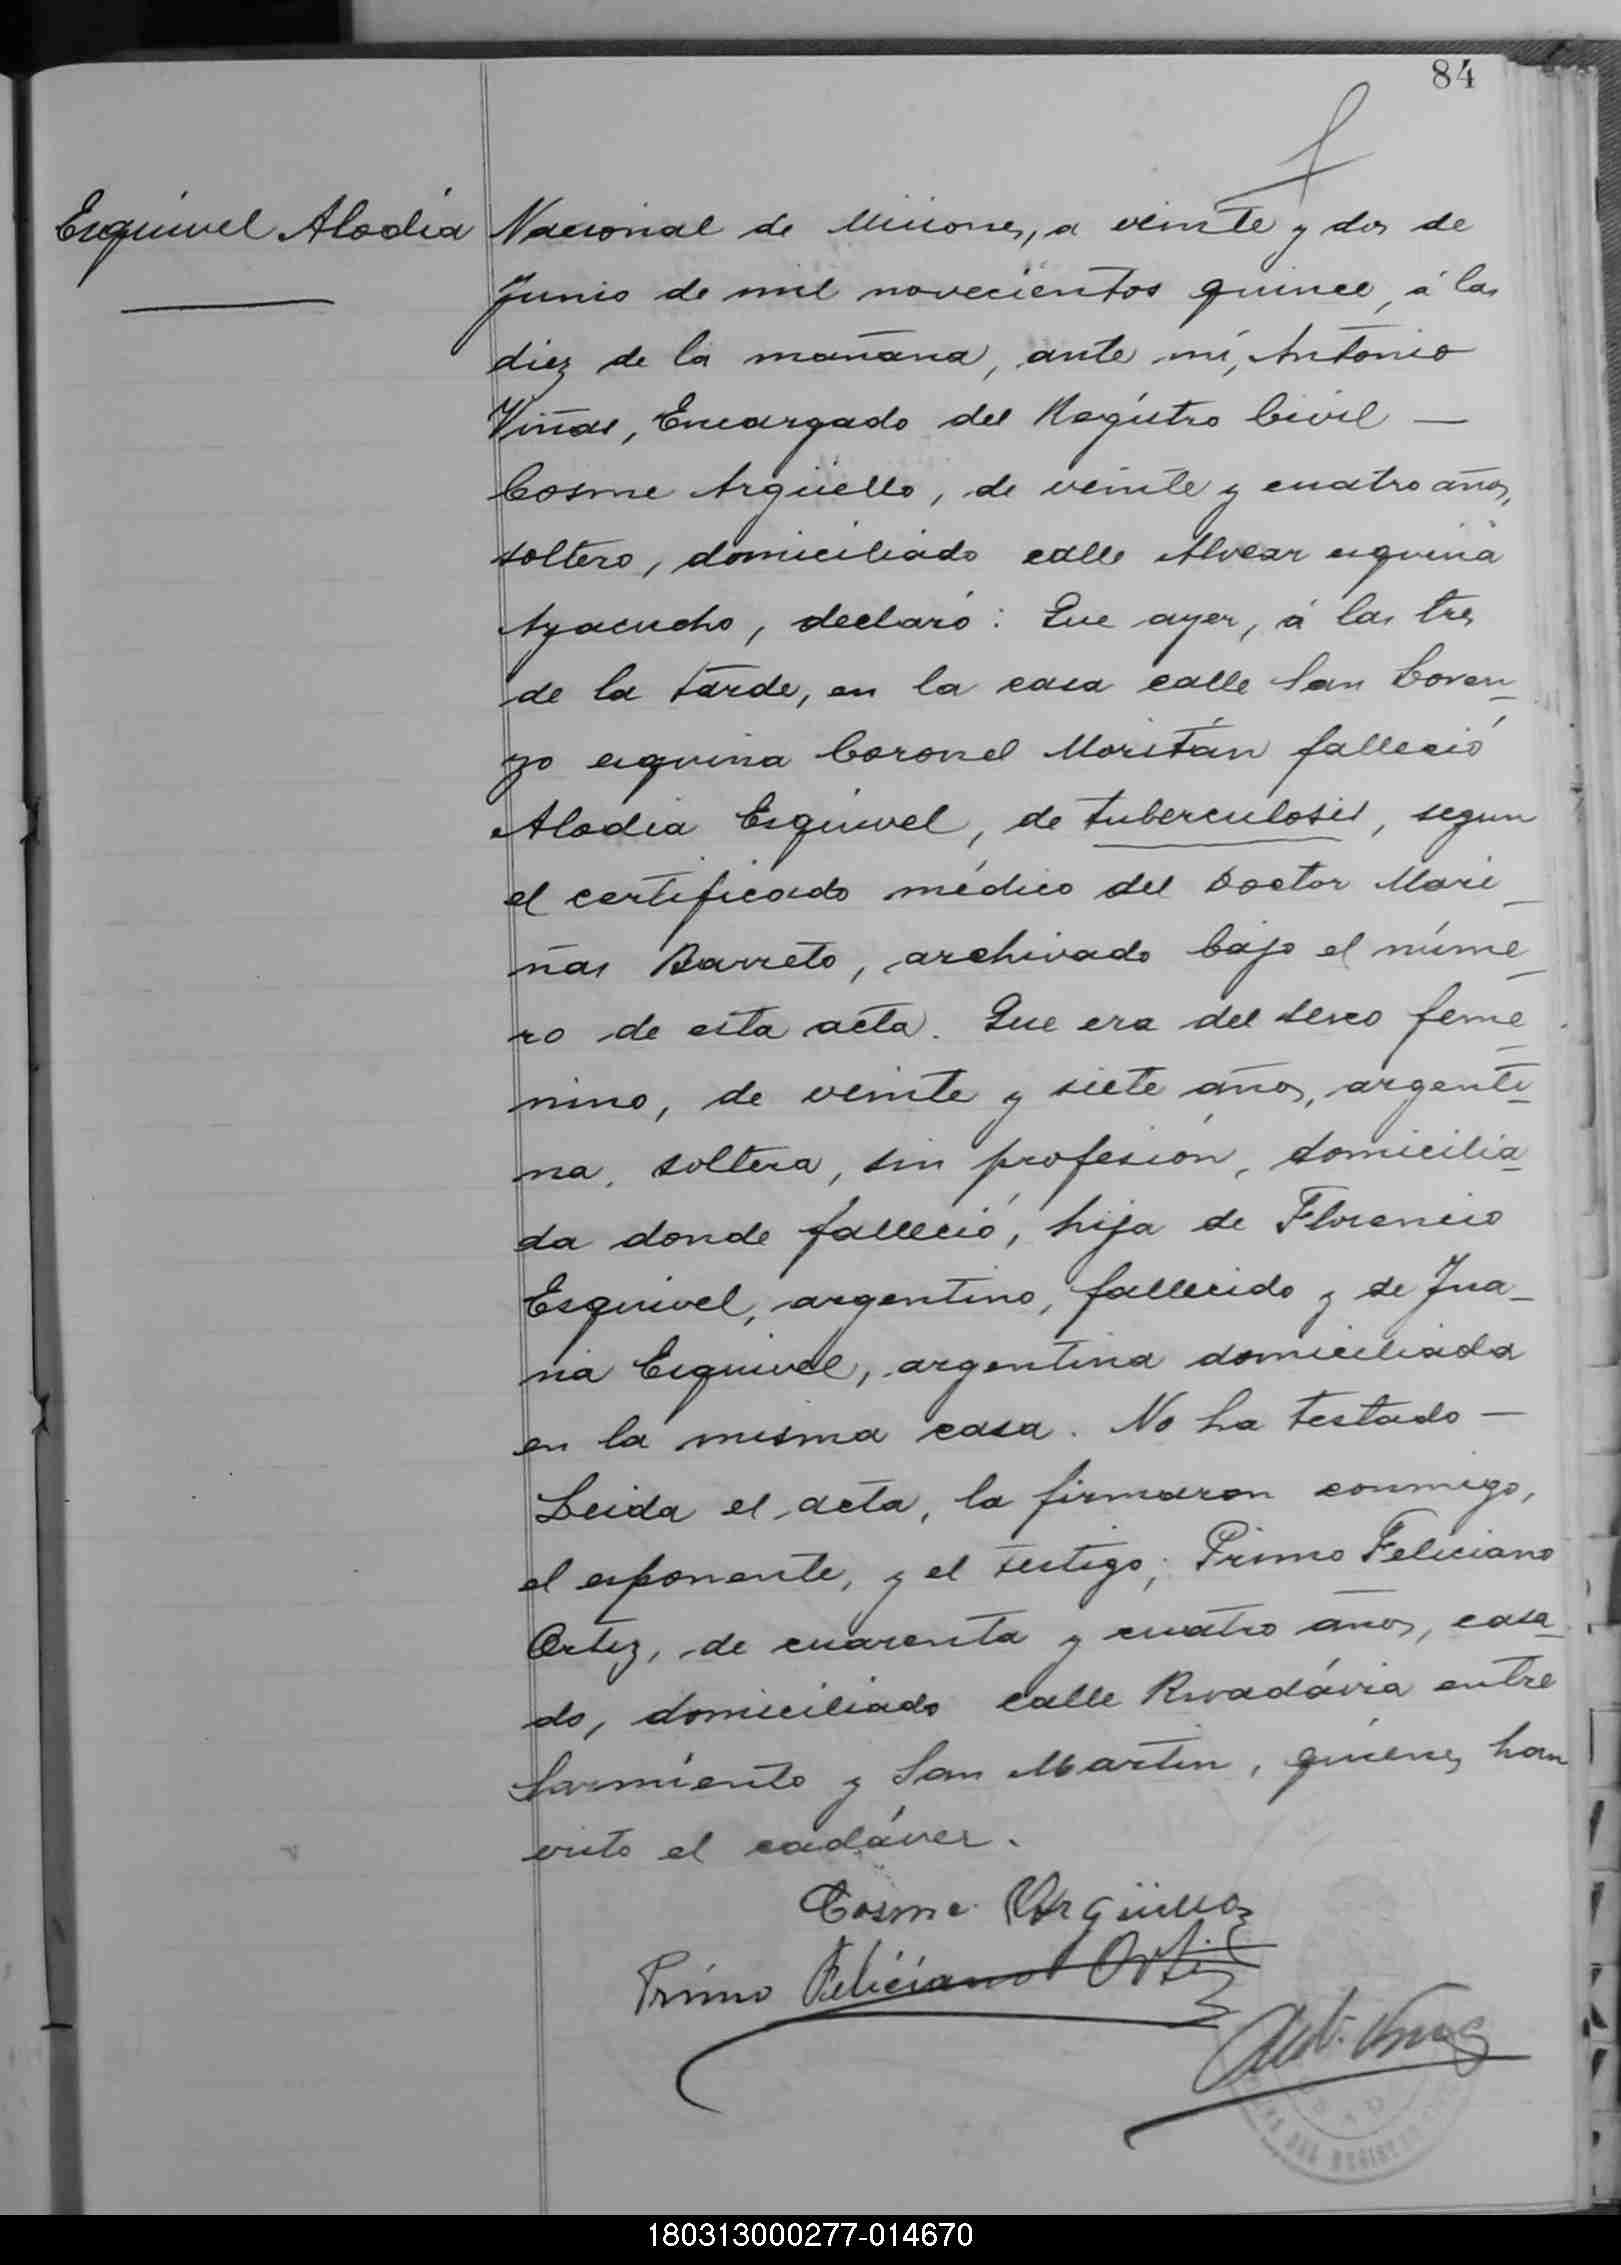 84
Esquivel Alodia
Nacional de Misiones, a veinte y dos de
Junio de mil novecientos quince, á las
diez de la mañana, ante mí, Antonio
Viñas, Encargado del Registro Civil —
Cosme Argüello, de veinte y cuatro años,
soltero, domiciliado calle Alvear esquina
Ayacucho, declaró: Que ayer, á las tres
de la tarde, en la casa calle San Loren-
zo esquina Coronel Moritán falleció
Alodia Esquivel, de tuberculosis, segun
el certificado médico del Doctor Mari-
ñas Barreto, archivado bajo el núme-
ro de esta acta. Que era del sexo feme-
nino, de veinte y siete años, argenti-
na, soltera, sin profesión, domicilia-
da donde falleció, hija de Florencio
Esquivel, argentino, fallecido y de Jua-
na Esquivel, argentina domiciliada
en la misma casa. No ha testado —
Leida el acta, la firmaron conmigo,
el esponente, y el testigo; Primo Feliciano
Ortiz, de cuarenta y cuatro años, casa-
do, domiciliado calle Rivadávia entre
Sarmiento y San Martin, quienes han
visto el cadáver.
Cosme Argüello
Primo Feliciano Ortiz
Ant. Viñas
180313000277-014670